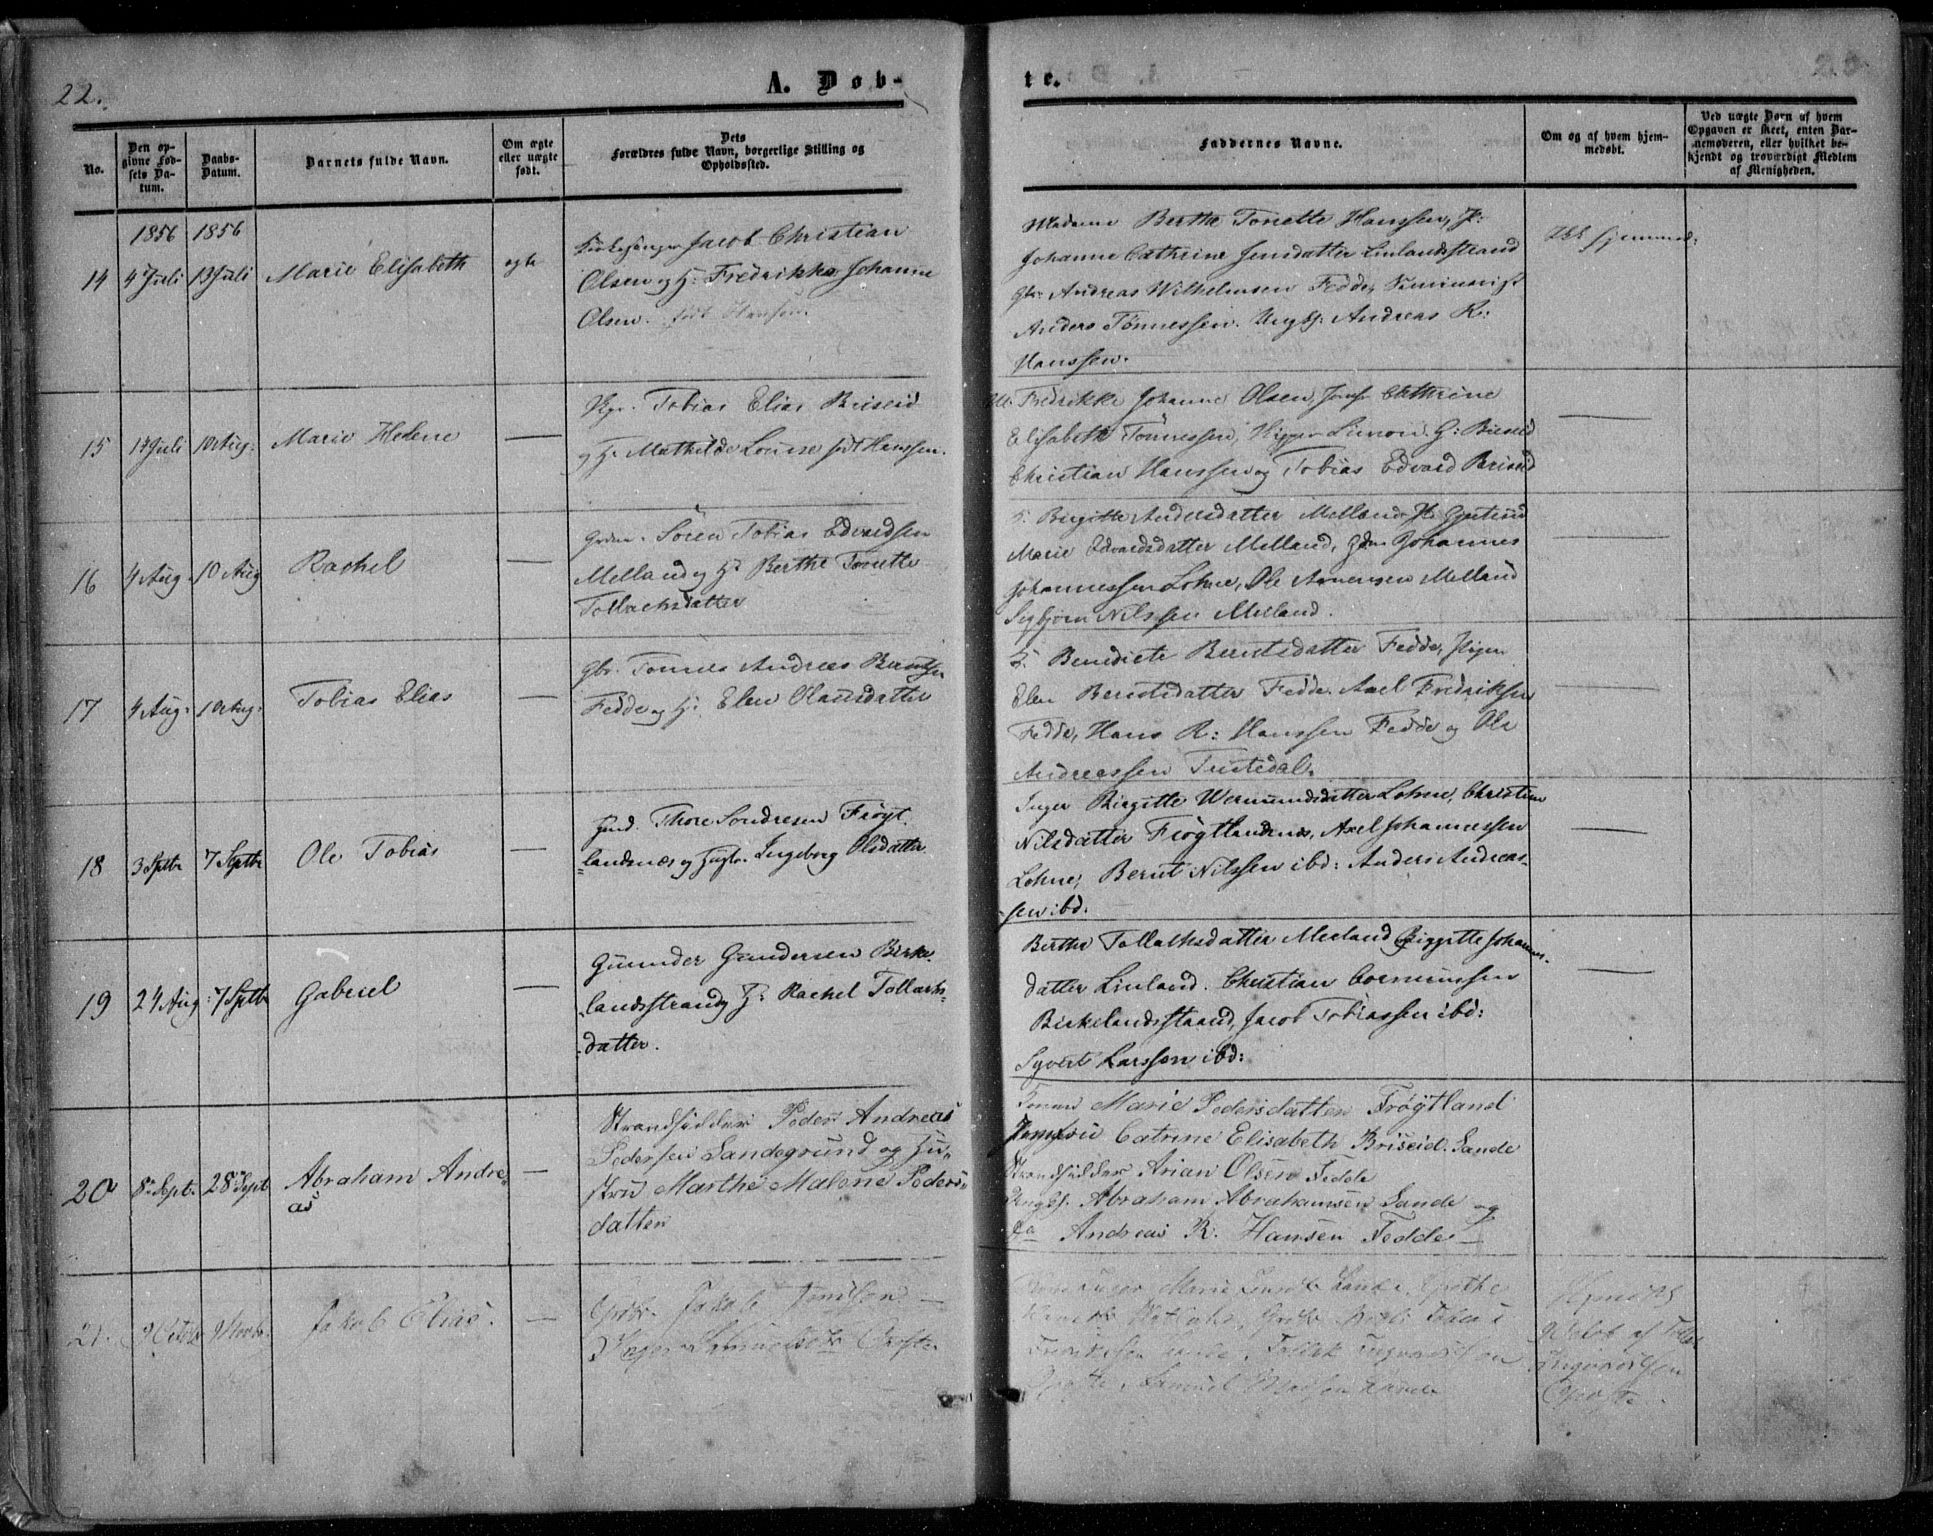 22.
A. Døb-
te.
No.
Den op-
givne Fød-
sels Da-
tum.
Daabs-
Datum.
Barnets fulde Navn.
Om ægte
eller uægte
født.
Dets
Forældres fulde Navn, borgerlige Stilling og
Opholdssted.
Faddernes Navne.
Om og af hvem hjem-
medøbt.
Ved uægte Børn af hvem
Opgaven er skeet, enten Bar-
nemoderen, eller hvilket be-
kjendt og troværdigt Medlem
af Menigheden.
1856 1856
14 4 Juli 13 Juli Marie Elisabeth ægte
Kirkesanger Jacob Christian
Olsen og H: Fredrikke Johanne
Olsen. født Hansen.
Madame Berthe Tonette Hanssen,
Johanne Cathrine Jensdatter Linlandsstrand
Gbr: Andreas Wilhelmsen Fedde, Seminarist
Anders Tønnessen. Ungk. Andreas R:
Hanssen.
15 17 Juli 10 Aug: Marie Helene —
Tobias Elias Briseid
og H: Mathilde Louise født Hanssen.
Fredrikke Johanne Olsen, Jomf Chathrine
Elisabeth Tønnessen, Skipper Simon G: Briseid
Christian Hanssen og Tobias Edvard Briseid
—
16 4 Aug 10 Aug Rachel —
Søren Tobias Edvardsen
Melland og H: Berthe Tonette
Tollachsdatter
Birgitte Andersdatter Melland
Marie Edvardsdatter Melland, Gdm Johannes
Johannessen Lohne, Ole Arnensen Melland
Sigbjørn Nilssen Melland.
—
17 4 Aug: 10 Aug: Tobias Elias —
Gbr. Tønnes Andreas Berntsen
Fedde og H: Elen Olausdatter
Benedicte Berntsdatter Fedde, Pigen
Elen Berntsdatter Fedde. Axel Fredriksen
Fedde, Hans R: Hanssen Fedde og Ole
Andreassen Trestedal.
—
18 3 Septbr 7 Septbr Ole Tobias —
Thore Sondresen Frøyt.
landsnæs og Ingeborg Olsdatter
Inger Birgitte Wermundsdatter Lohne, Christine
Nilsdatter Frøytlandsnæs, Axel Johannessen
Lohne, Bernt Nilssen ibd: Anders Andreas-
sen ibd.
—
19 24 Aug: 7 Septb Gabriel —
Gunder Gundersen Birke-
landsstrand og H: Rachel Tollachs-
datter.
Berthe Tollachsdatter Melland Birgitte Johannes-
datter Linland. Christian Gormunsen
Birkelandsstrand, Jacob Tobiassen ibd:
Syvert Larssen ibd:
—
20 8 Sept. 28 Sept Abraham Andre-
as —
Strandsidder Peder Andreas
Pedersen Sandegrund og Hu-
stru Marthe Malene Peders-
datter
Marie Pedersdatter Frøytland
Jomfru Catrine Elisabeth Briseid. Sande
Strandsidder Arian Olsen Fedde
Ungk. Abraham Abrahamsen Sande og
do Andreas R. Hansen Fedde
21. 9 Novbr. Jakob Elias. —
Jakob
Inger
Marie
Samuel
af